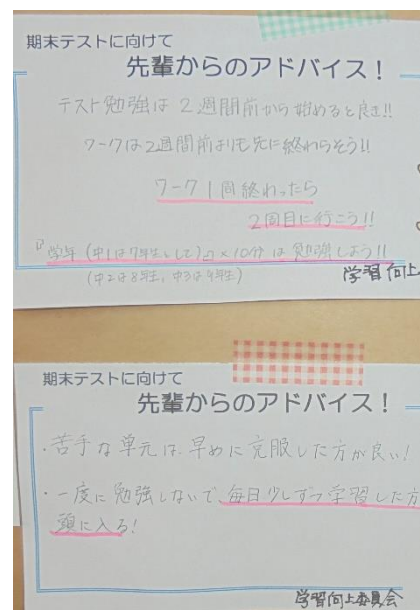 期末テストに向けて
先輩からのアドバイス！
テスト勉強は2週間前から始めると良き!!
ワークは2週間前よりも先に終わらそう!!
ワーク1周終わったら
2周目に行こう!!
『学年(中1は7年生として)』×10分は勉強しよう!!
(中2は8年生、中3は9年生)
学習向上
期末テストに向けて
先輩からのアドバイス！
・苦手な単元は、早めに克服した方が良い!
・一度に勉強しないで、毎日少しずつ学習した方
頭に入る!
学習向上委員会